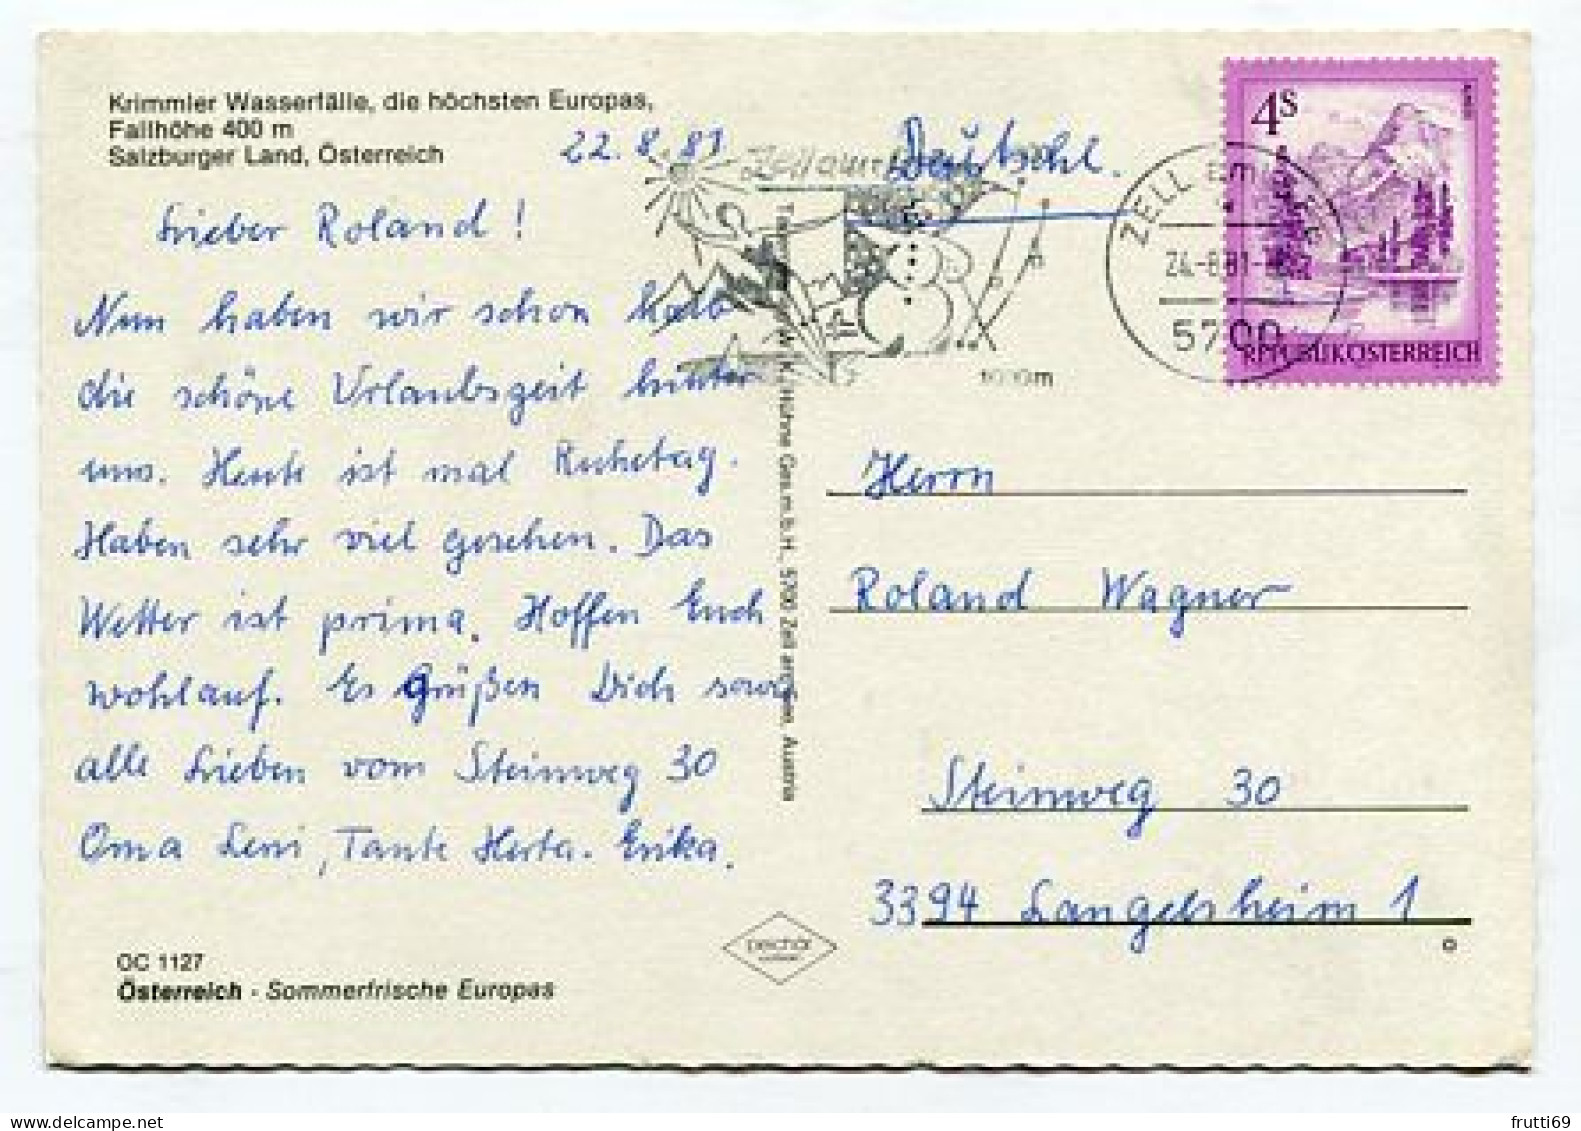 Krimmler Wasserfälle, die höchsten Europas,
Fallhöhe 400 m
Salzburger Land, Österreich
22.8.81
Lieber Roland!
Nun haben wir schon halb
die schöne Urlaubszeit hinter
uns. Heute ist mal Ruhetag.
Haben sehr viel gesehen. Das
Wetter ist prima. Hoffen Euch
wohlauf. Es Grüßen Dich sowie
alle Lieben vom Steinweg 30
Oma Leni, Tante Herta. Erika.
OC 1127
Österreich - Sommerfrische Europas
Hühne Ges.m.b.H., 5700 Zell am See, Austria
Zell am
1000m
Deutschl.
ZELL am
24.-8.81
5700
4S
REPUBLIK ÖSTERREICH
Herrn
Roland Wagner
Steinweg 30
3394 Langelsheim 1
frutti69